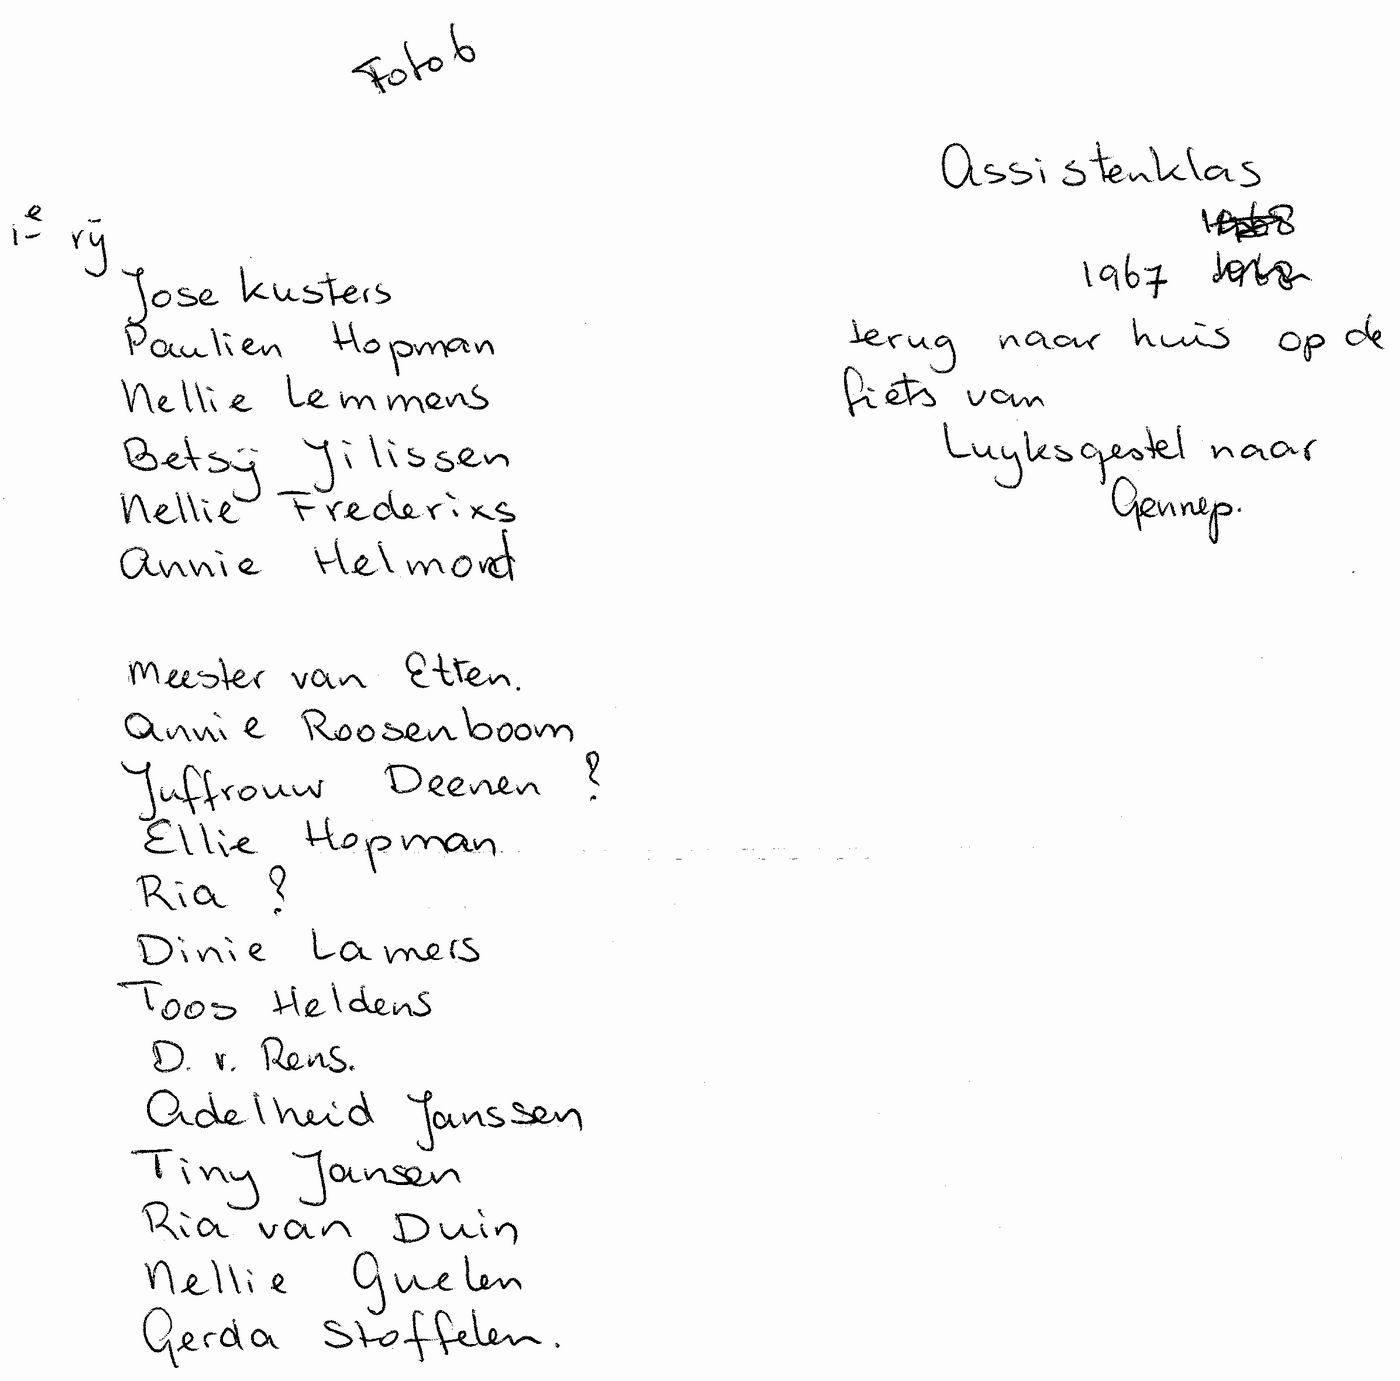 Foto 6
1e rij
Jose Kusters
Paulien Hopman
Nellie Lemmens
Betsij Jilissen
Nellie Frederixs
Annie Helmond
Meester van Etten.
Annie Roosenboom
Juffrouw Deenen ?
Ellie Hopman
Ria ?
Dinie Lamers
Toos Heldens
D. v. Rens.
Adelheid Janssen
Tiny Jansen
Ria van Duin
Nellie Guelen
Gerda Stoffelen.
Assistenklas
1967
terug naar huis op de
fiets van
Luyksgestel naar
Gennep.